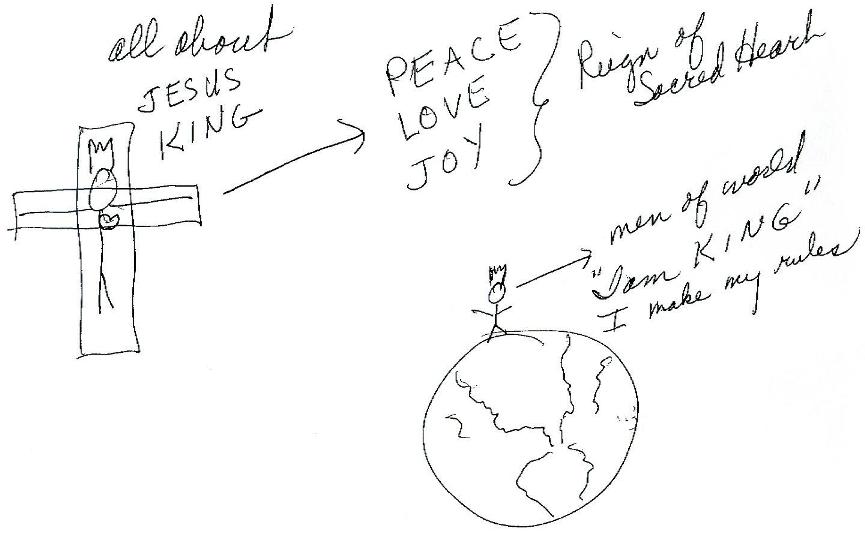 all about
JESUS
KING
PEACE
LOVE
JOY
Reign of
Sacred Heart
men of world
"I am KING"
I make my rules